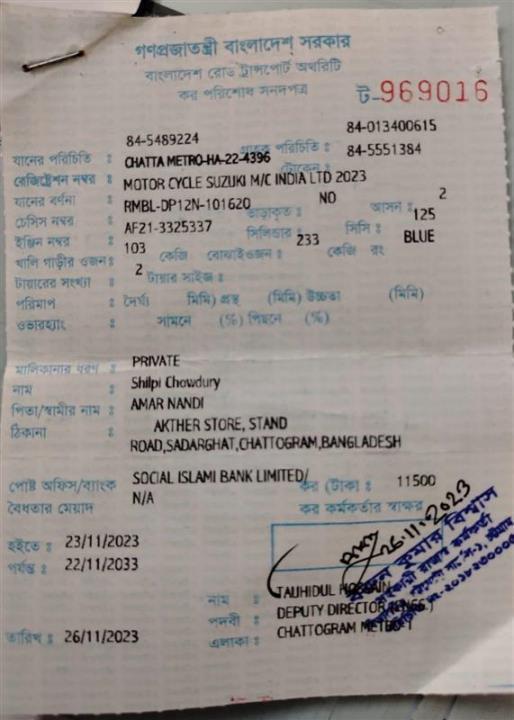 গণপ্রজাতন্ত্রী বাংলাদেশ সরকার
বাংলাদেশ রোড ট্রান্সপোর্ট অথরিটি
কর পরিশোধ সনদপত্র
ট-969016
84-5489224 84-013400615
যানের পরিচিতি : গ্রাহক পরিচিতি : 84-5551384
রেজিষ্ট্রেশন নম্বর : CHATTA METRO-HA-22-4396 টোকেন :
যানের বর্ণনা : MOTOR CYCLE SUZUKI M/C INDIA LTD 2023
চেসিস নম্বর : RMBL-DP12N-101620 ভাড়াকৃত : NO আসন : 2
ইঞ্জিন নম্বর : AF21-3325337 সিলিন্ডার : সিসি : 125
খালি গাড়ীর ওজন : 103 কেজি বোঝাইওজন : 233 কেজি রং BLUE
টায়ারের সংখ্যা : 2 টায়ার সাইজ :
পরিমাপ : দৈর্ঘ্য (মিমি) প্রস্থ (মিমি) উচ্চতা (মিমি)
ওভারহ্যাং : সামনে (%) পিছনে (%)
মালিকানার ধরণ : PRIVATE
নাম : Shilpi Chowdury
পিতা/স্বামীর নাম : AMAR NANDI
ঠিকানা : AKTHER STORE, STAND
ROAD,SADARGHAT,CHATTOGRAM,BANGLADESH
পোষ্ট অফিস/ব্যাংক SOCIAL ISLAMI BANK LIMITED/ কর (টাকা) : 11500
বৈধতার মেয়াদ N/A কর কর্মকর্তার স্বাক্ষর
হইতে : 23/11/2023
পর্যন্ত : 22/11/2033
26.11.2023
নাম : TAUHIDUL HOSSAIN
পদবী : DEPUTY DIRECTOR (ENGG.)
তারিখ : 26/11/2023 এলাকা : CHATTOGRAM METRO-1
কুমার বিশ্বাস